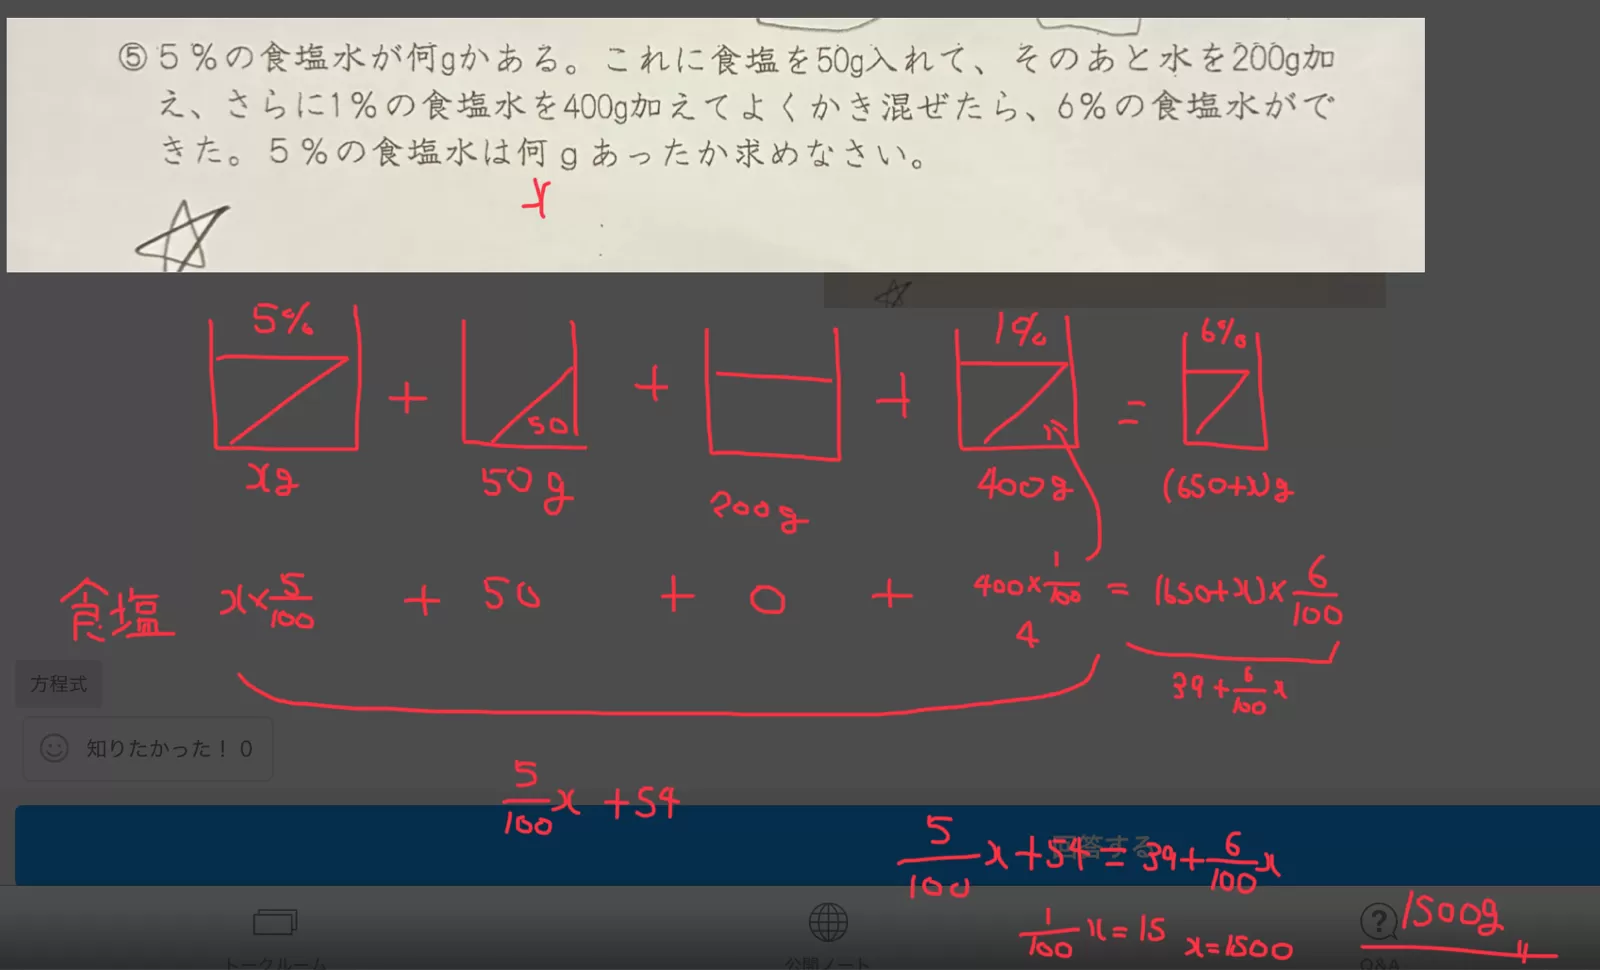 ⑤５％の食塩水が何gかある。これに食塩を50g入れて、そのあと水を200g加
え、さらに1％の食塩水を400g加えてよくかき混ぜたら、6％の食塩水がで
きた。５％の食塩水は何ｇあったか求めなさい。
x
5% 1% 6%
+ 50 + + =
xg 50g 200g 400g (650+x)g
食塩 x×5/100 + 50 + 0 + 400×1/100 = (650+x)×6/100
4
方程式
39+6/100x
知りたかった！ 0
5/100x +54
回答する
5/100x+54=39+6/100x
1/100x=15 x=1500 1500g
トークルーム 公開ノート Q&A